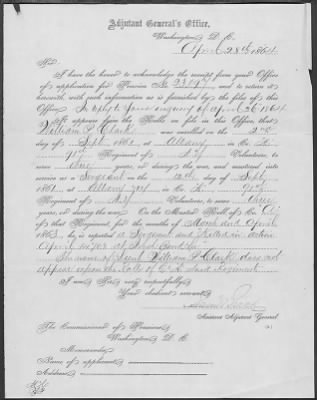 Adjutant General's Office,
Washington, D. C.
April 28th 1864
Sir:
I have the honor to acknowledge the receipt from your Office
of application for Pension No. 23097, and to return it
herewith, with such information as is furnished by the files of this
Office. In reply to your inquiry of April 26 1864
It appears from the Rolls on file in this Office, that
William P. Clark was enrolled on the 2nd
day of Sept 1861, at Albany, in Co.
Regiment of N.Y. Volunteers, to serve
three years, or during the war, and mustered into
service as a Sergeant on the 12th day of Sept
1861, at Albany N.Y., in Co.
Regiment of N.Y. Volunteers, to serve three
years, or during the war. On the Muster Roll of Co.
of that Regiment, for the months of March and April,
1863, he is reported a Sergeant and Killed in action
April
The name of William P. Clark does not
appear upon the Rolls of said Regiment
I am, Sir, very respectfully,
Your obedient servant,
Assistant Adjutant General.
The Commissioner of Pensions,
Washington, D. C.
Memoranda:
Name of applicant
Address